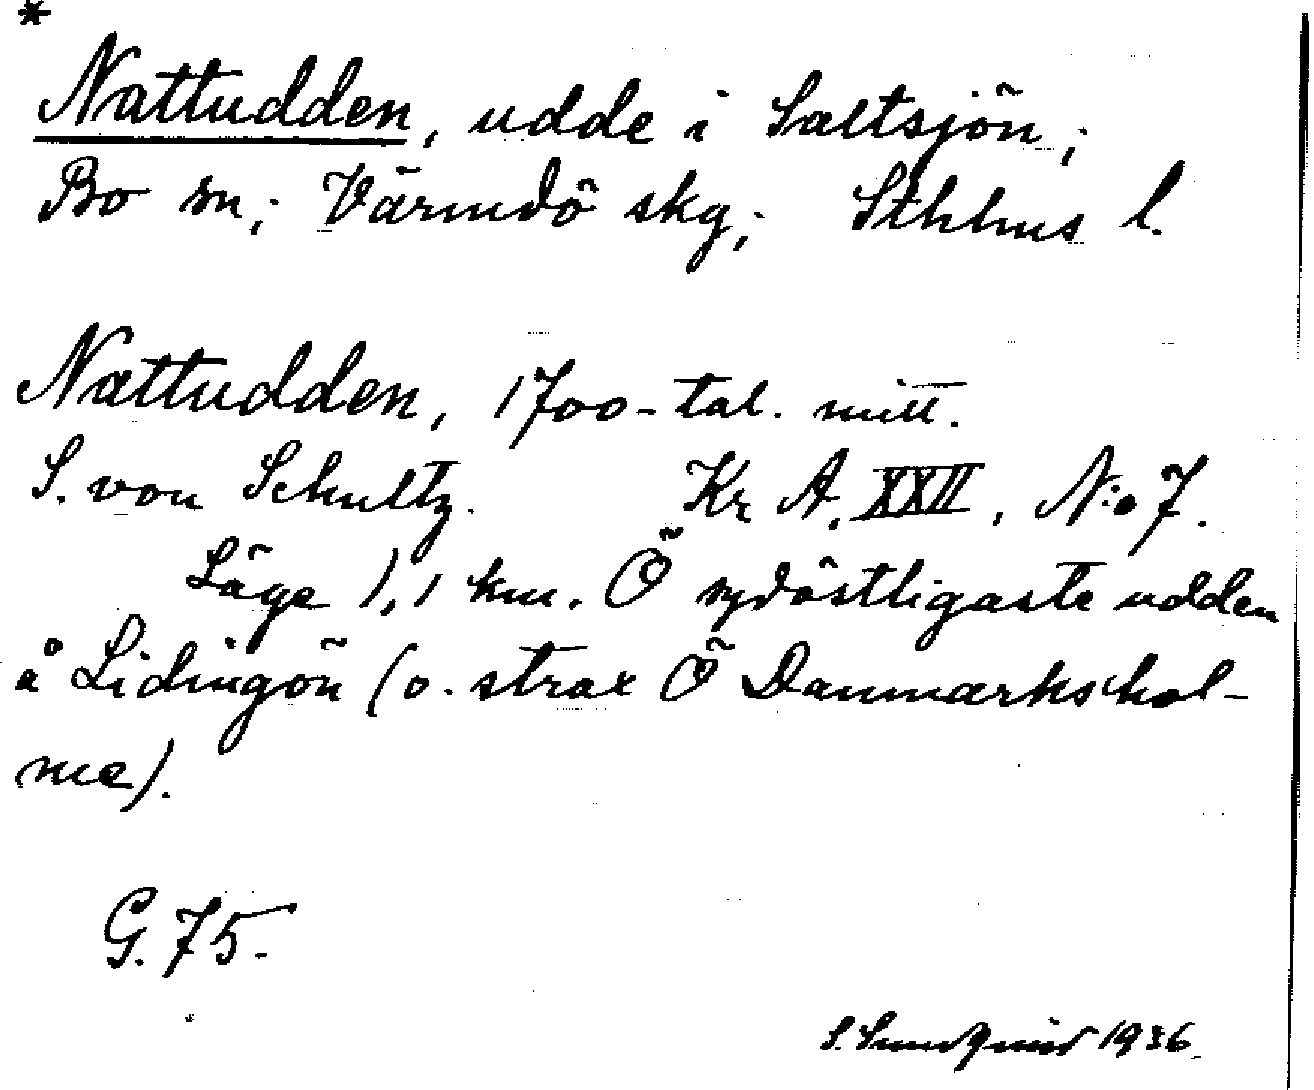 *
Nattudden, udde i Saltsjön;
Bo sn; Värmdö skg; Sthlms l.
Nattudden, 1700-tal. mitt.
S. von Schultz. Kr A. XXII, N:o 7.
Läge 1,1 km. Ö sydöstligaste udden
å Lidingön (o. strax Ö Danmarkshol-
me).
G. 75.
S. Sundqvist 1936